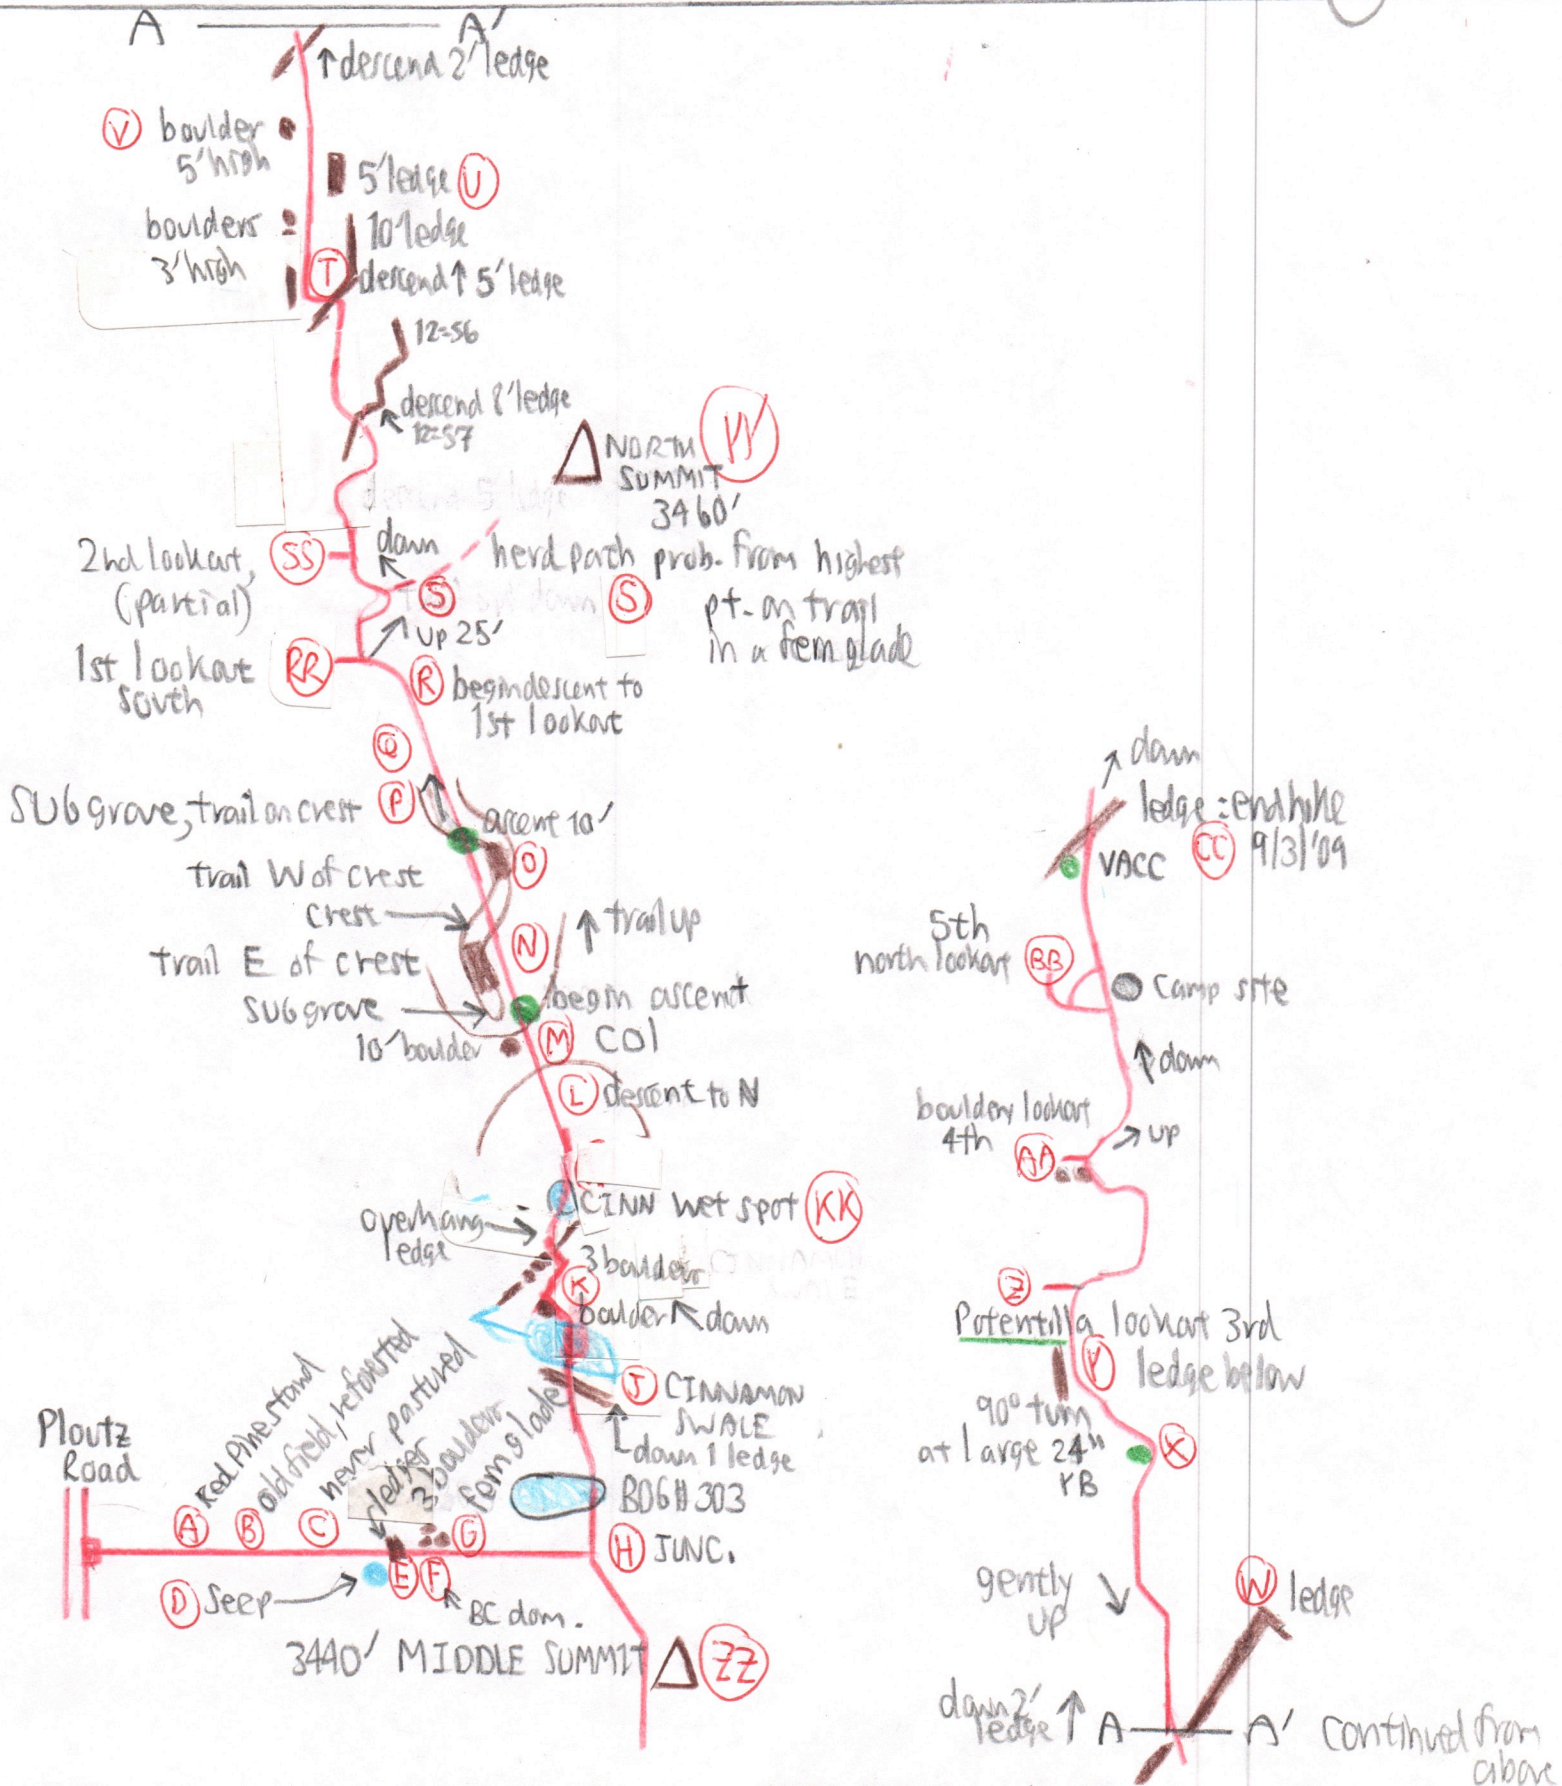 A A'
↑ descend 2' ledge
V boulder
5' high
5' ledge U
boulders
3' high
10' ledge
T
descend ↑ 5' ledge
12=56
descend 8' ledge
12=57
NORTH
SUMMIT
3460'
2nd lookout,
(partial)
SS
down
S
herd path prob. from highest
S pt. on trail
in a fern glade
up 25'
1st lookout
south
RR
R begin descent to
1st lookout
Q
SUB grove, trail on crest P
ascent 10'
O
trail W of crest
crest
N
↑ trail up
trail E of crest
SUB grove
begin ascent
10' boulder
M COl
L descent to N
CINN wet spot KK
overhang
ledge
3 boulders
K
boulder
down
J CINNAMON
SWALE
down 1 ledge
BDG#303
H JUNC.
Ploutz
Road
Red Pine stand
old field, reforested
never pastured
ledge
3 boulders
fern glade
A B C G
D Seep
E F
BC dom.
3440' MIDDLE SUMMIT ZZ
↑ down
ledge = end hike
9/3/'09
VACC CC
5th
north lookout BB
Camp site
↑ down
bouldery lookout
4th
AA
up
Z
Potentilla lookout 3rd
Y ledge below
90° turn
at large 24"
YB
X
gently
up
W ledge
down 2'
ledge ↑
A A' continued from
above